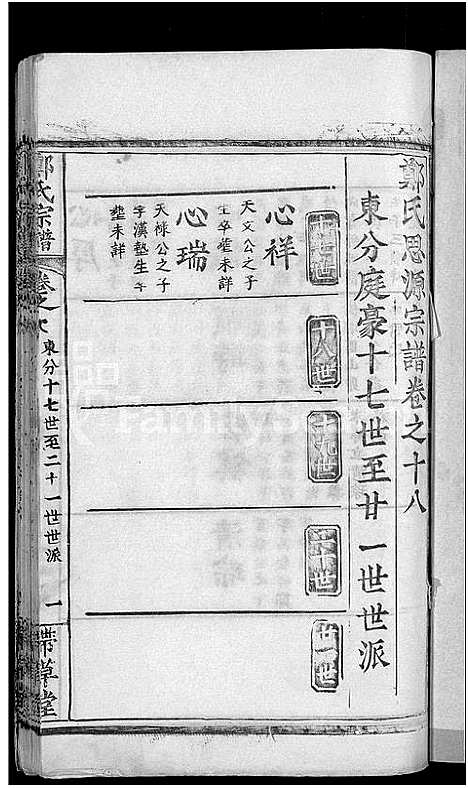 鄭氏思源宗譜卷之十八
東分庭豪十七世至廿一世世派
十七世
心祥
天文公之子
生卒塋未詳
心瑞
天祿公之子
字漢塾生午
塋未詳
十八世
十九世
二十世
廿一世
鄭氏宗譜
卷之
東分十七世至二十一世世派
一
帶草堂
FamilySearch